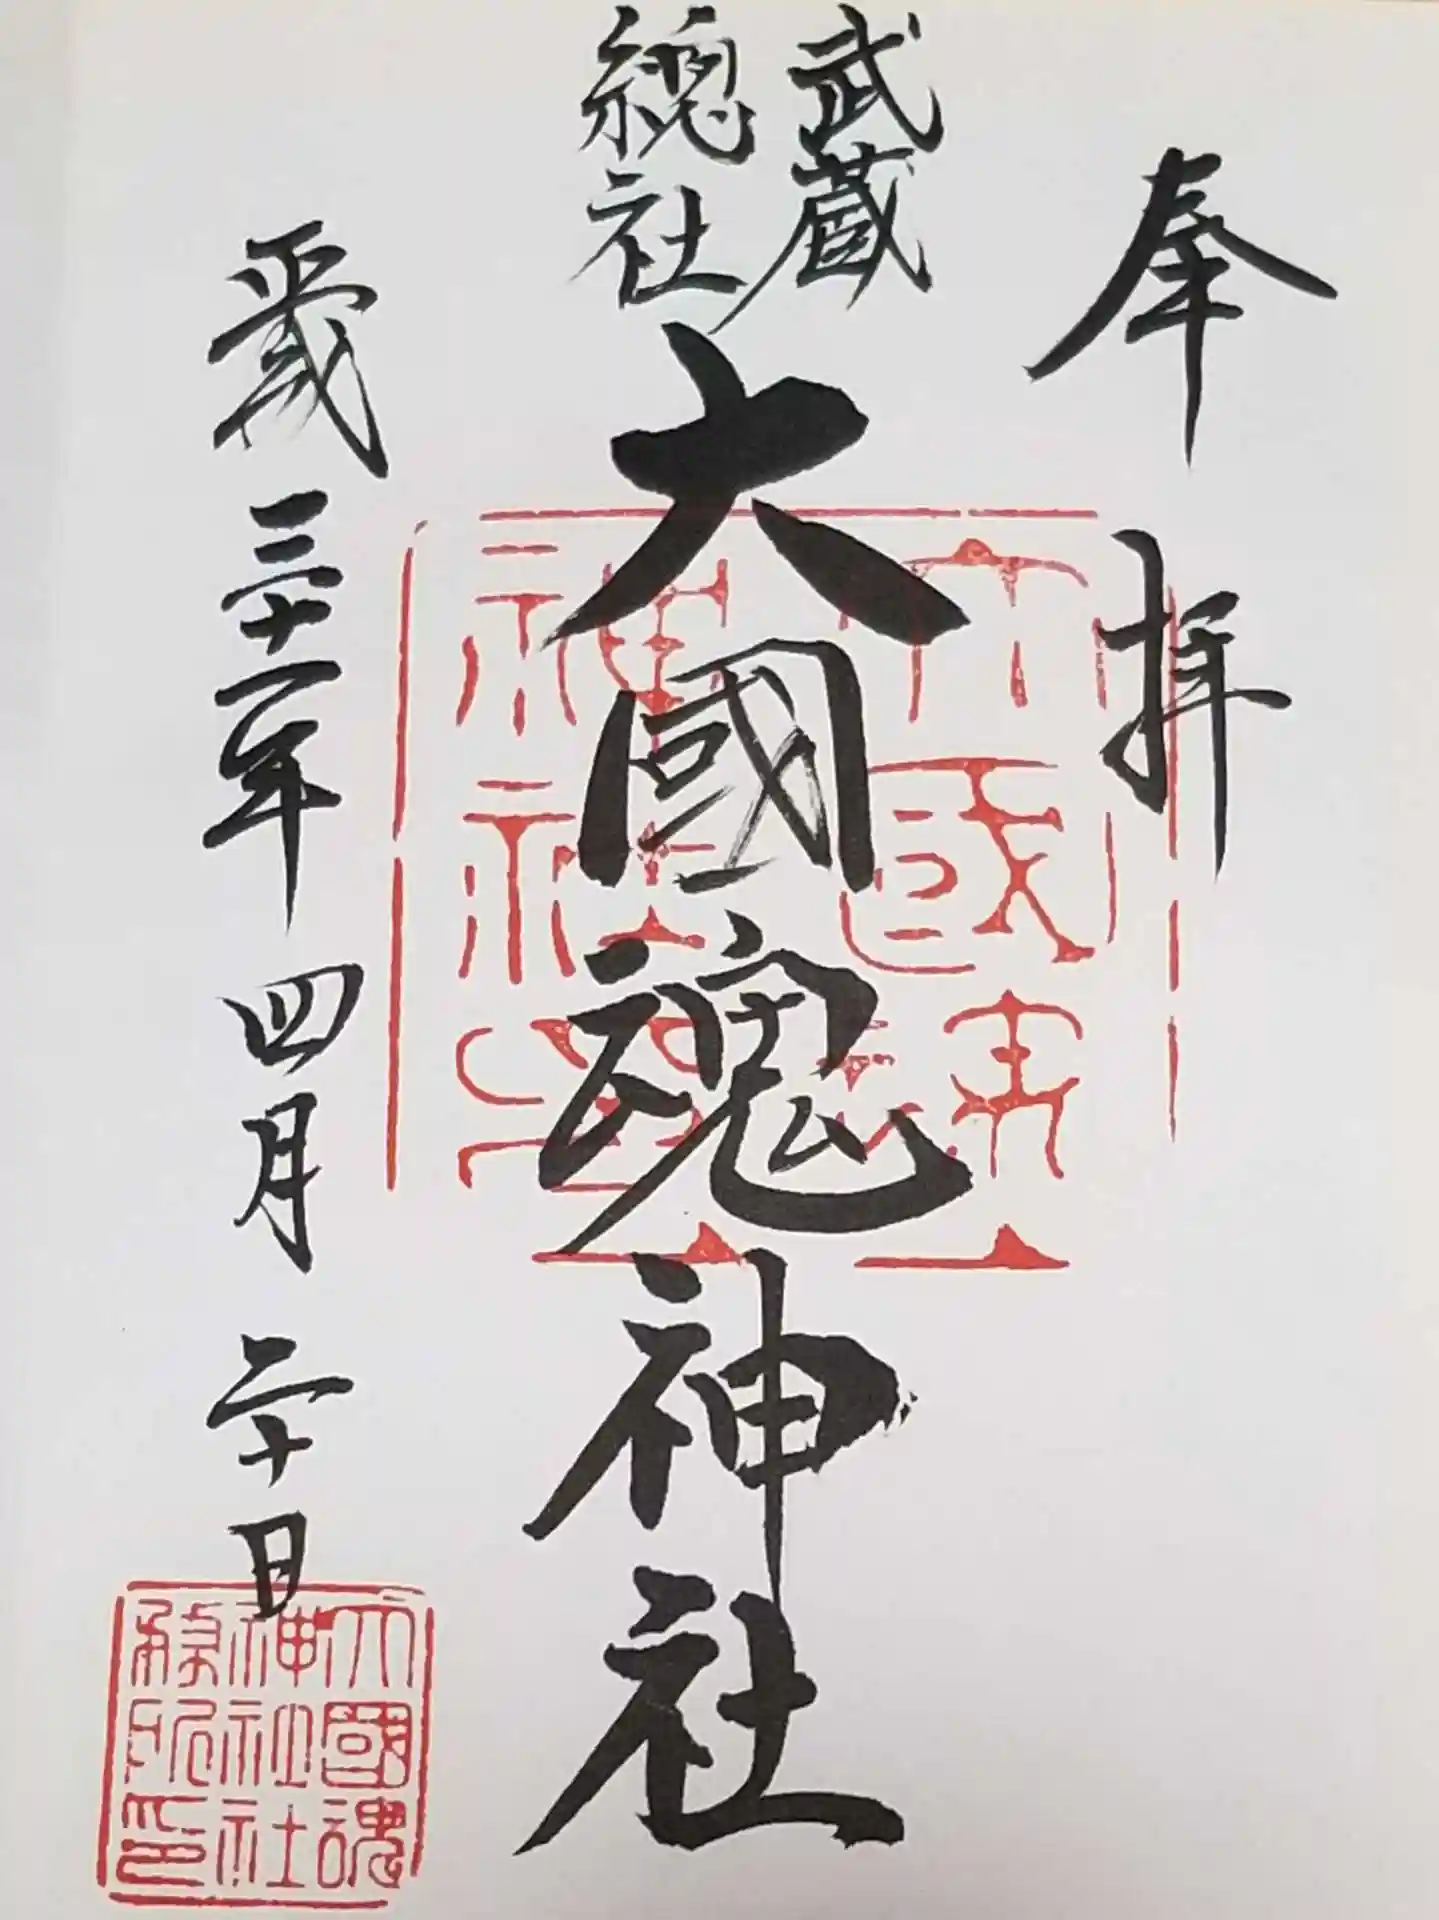 奉拝
武蔵
總社
大國魂神社
平成三十一年四月二十日
大國魂
神社印
大國魂
神社社
務所印